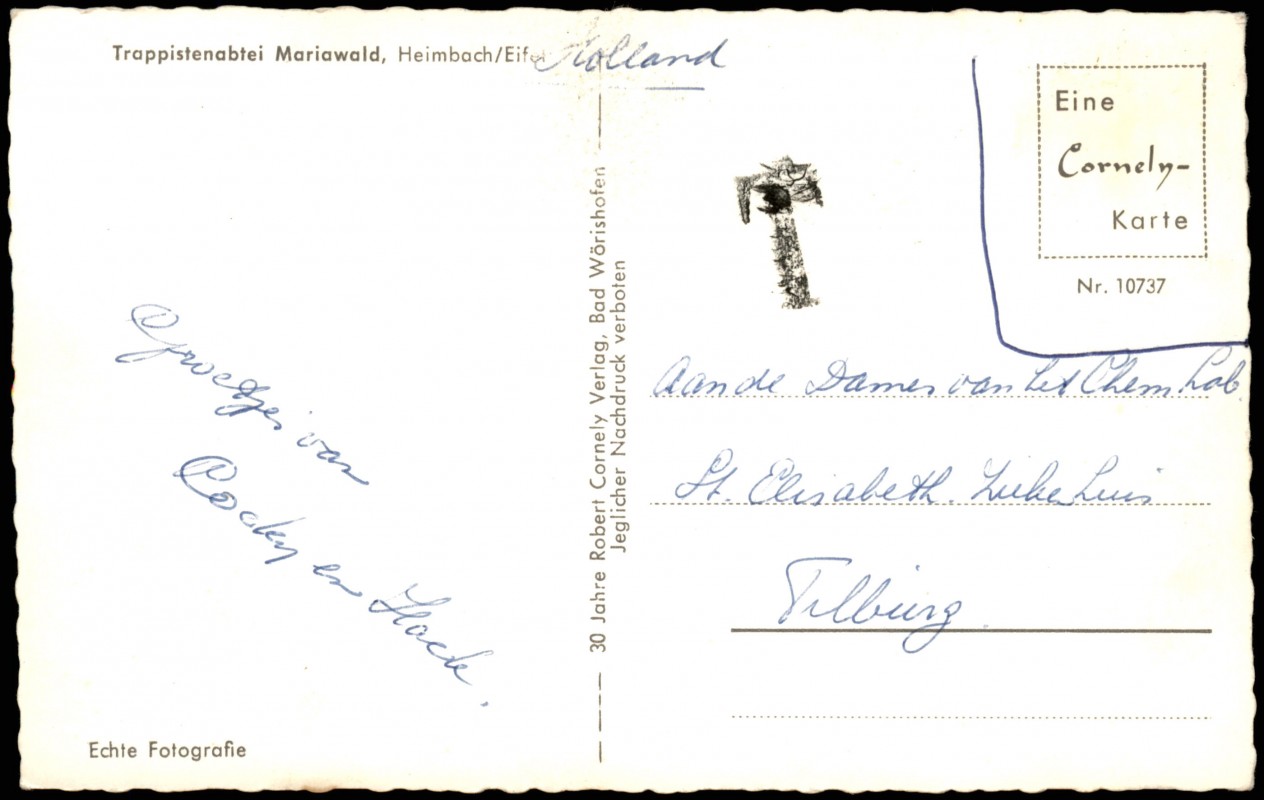 Trappistenabtei Mariawald, Heimbach/Eifel
Holland
Eine
Cornely-
Karte
Nr. 10737
Groetjes van
Cocky en
30 Jahre Robert Cornely Verlag, Bad Wörishofen
Jeglicher Nachdruck verboten
Aan de Dames van het Chem Lab.
St. Elisabeth. Ziekehuis
Tilburg.
Echte Fotografie